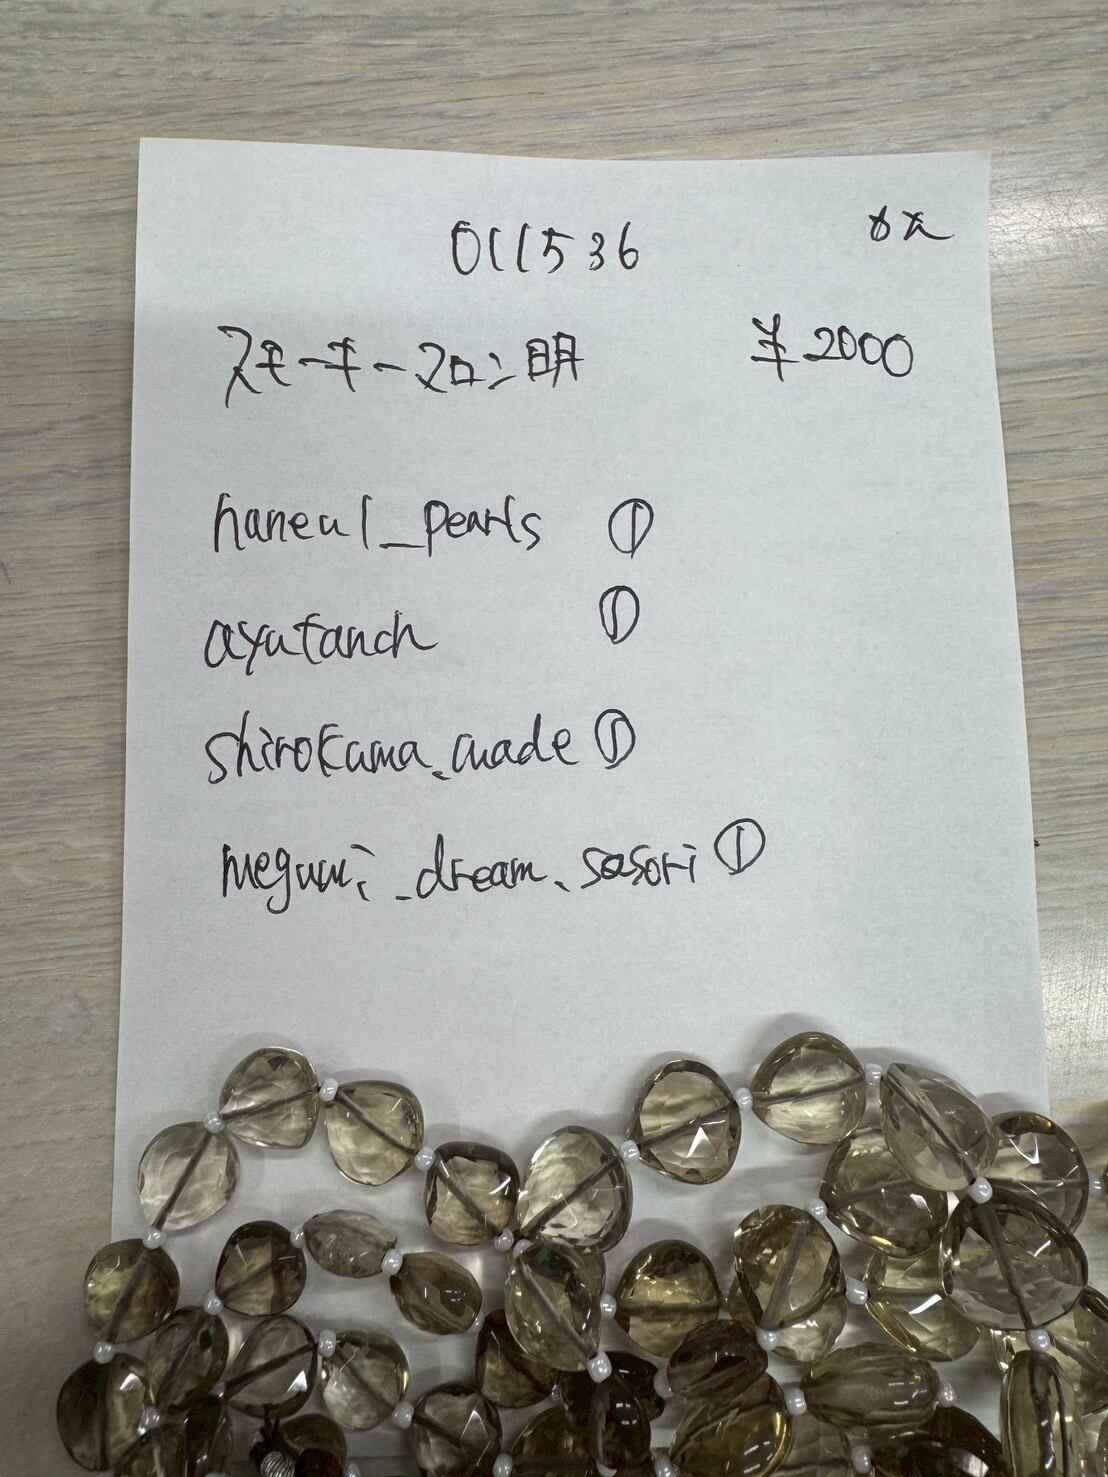 011536
スモーキーマロン明 ¥2000
haneul_pearls ①
ayutanch ①
shirokuma_made ①
megumi_dream_sasori ①